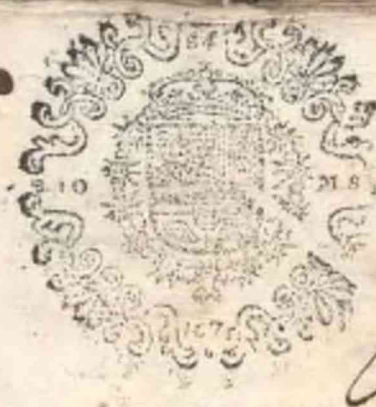 84
S. 10 M. S
167